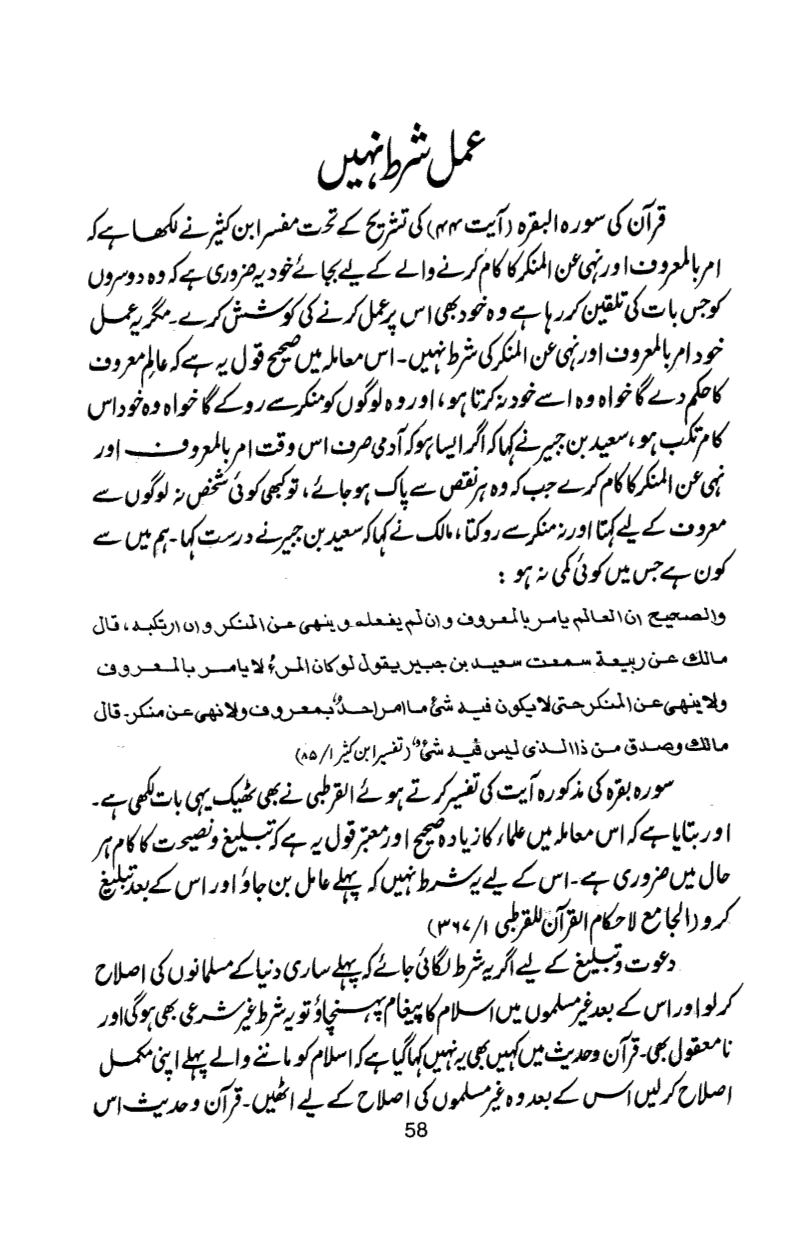 عمل شرط نہیں
قرآن کی سورہ البقرہ (آیت ۴۴) کی تشریح کے تحت مفسر ابن کثیر نے لکھا ہے کہ
امر بالمعروف اور نہی عن المنکر کا کام کرنے والے کے لیے بجائے خود یہ ضروری ہے کہ وہ دوسروں
کو جس بات کی تلقین کر رہا ہے وہ خود بھی اس پر عمل کرنے کی کوشش کرے۔ مگر یہ عمل
خود امر بالمعروف اور نہی عن المنکر کی شرط نہیں۔ اس معاملہ میں صحیح قول یہ ہے کہ عالم معروف
کا حکم دے گا خواہ وہ اسے خود نہ کرتا ہو، اور وہ لوگوں کو منکر سے روکے گا خواہ وہ خود اس
کا مرتکب ہو، سعید بن جبیر نے کہا کہ اگر ایسا ہو کہ آدمی صرف اس وقت امر بالمعروف اور
نہی عن المنکر کا کام کرے جب کہ وہ ہر نقص سے پاک ہو جائے، تو کبھی کوئی شخص نہ لوگوں سے
معروف کے لیے کہتا اور نہ منکر سے روکتا، مالک نے کہا کہ سعید بن جبیر نے درست کہا۔ ہم میں سے
کون ہے جس میں کوئی کمی نہ ہو :
والصحیح ان العالم یامر بالمعروف وان لم یفعلہ وینھی عن المنکر وان ارتکبہ، قال
مالک عن ربیعۃ سمعت سعید بن جبیر یقول لو کان المرءُ لا یامر بالمعروف
ولا ینھی عن المنکر حتی لا یکون فیہ شئ ما امر احدٌ بمعروف ولا نھی عن منکر۔ قال
مالک وصدق من ذا الذی لیس فیہ شئٌ (تفسیر ابن کثیر ۱/ ۸۵)
سورہ بقرہ کی مذکورہ آیت کی تفسیر کرتے ہوئے القرطبی نے بھی ٹھیک یہی بات لکھی ہے۔
اور بتایا ہے کہ اس معاملہ میں علماء کا زیادہ صحیح اور معتبر قول یہ ہے کہ تبلیغ و نصیحت کا کام ہر
حال میں ضروری ہے۔ اس کے لیے یہ شرط نہیں کہ پہلے عامل بن جاؤ اور اس کے بعد تبلیغ
کرو (الجامع لاحکام القرآن للقرطبی ۱/ ۳۶۷)
دعوت و تبلیغ کے لیے اگر یہ شرط لگائی جائے کہ پہلے ساری دنیا کے مسلمانوں کی اصلاح
کر لو اور اس کے بعد غیر مسلموں میں اسلام کا پیغام پہنچاؤ تو یہ شرط غیر شرعی بھی ہوگی اور
نامعقول بھی۔ قرآن و حدیث میں کہیں بھی یہ نہیں کہا گیا ہے کہ اسلام کو ماننے والے پہلے اپنی مکمل
اصلاح کر لیں اس کے بعد وہ غیر مسلموں کی اصلاح کے لیے اٹھیں۔ قرآن و حدیث اس
58